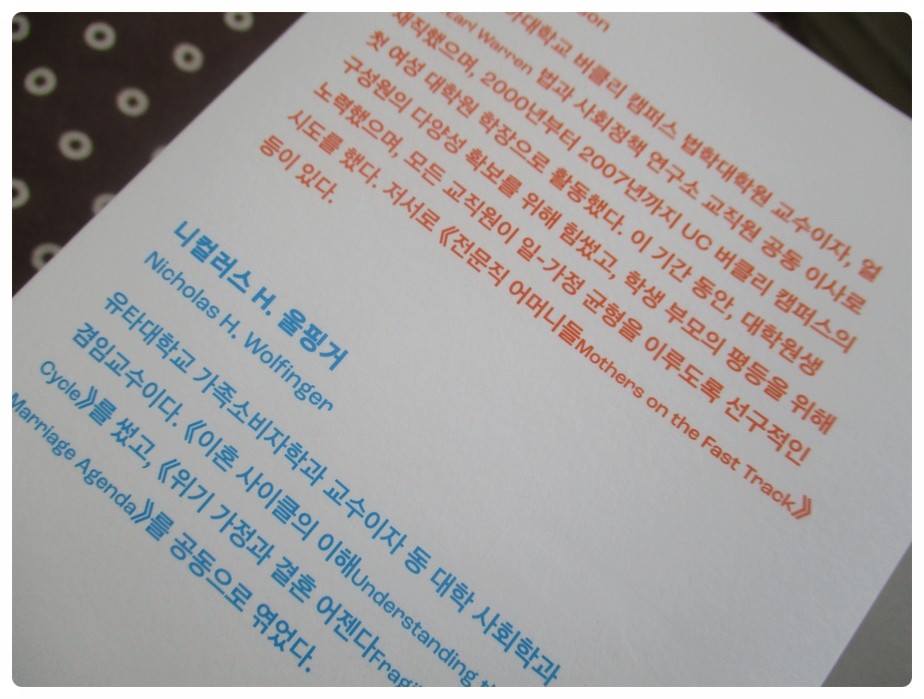 son
대학교 버클리 캠퍼스 법학대학원 교수이자, 얼
Earl Warren 법과 사회정책 연구소 교직원 공동 이사로
재직했으며, 2000년부터 2007년까지 UC 버클리 캠퍼스의
첫 여성 대학원 학장으로 활동했다. 이 기간 동안, 대학원생
구성원의 다양성 확보를 위해 힘썼고, 학생 부모의 평등을 위해
노력했으며, 모든 교직원이 일-가정 균형을 이루도록 선구적인
시도를 했다. 저서로 《전문직 어머니들Mothers on the Fast Track》
등이 있다.
니컬러스 H. 울핑거
Nicholas H. Wolfinger
유타대학교 가족소비자학과 교수이자 동 대학 사회학과
겸임교수이다. 《이혼 사이클의 이해Understanding
Cycle》를 썼고, 《위기 가정과 결혼 어젠다Fragi
Marriage Agenda》를 공동으로 엮었다.